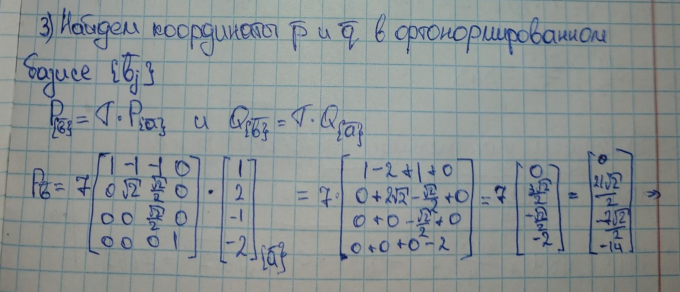 3) Найдем координаты p̅ и q̅ в ортонормированном
базисе {b̅j}
P{b̅} = T·P{a̅} и Q{b̅} = T·Q{a̅}
Pb̅ = 7 [1 -1 -1 0; 0 √2 √2/2 0; 0 0 √2/2 0; 0 0 0 1] · [1; 2; -1; -2]{a̅} = 7· [1-2+1+0; 0+2√2-√2/2+0; 0+0-√2/2+0; 0+0+0-2] = 7 [0; 3√2/2; -√2/2; -2] = [0; 21√2/2; -7√2/2; -14] ⇒